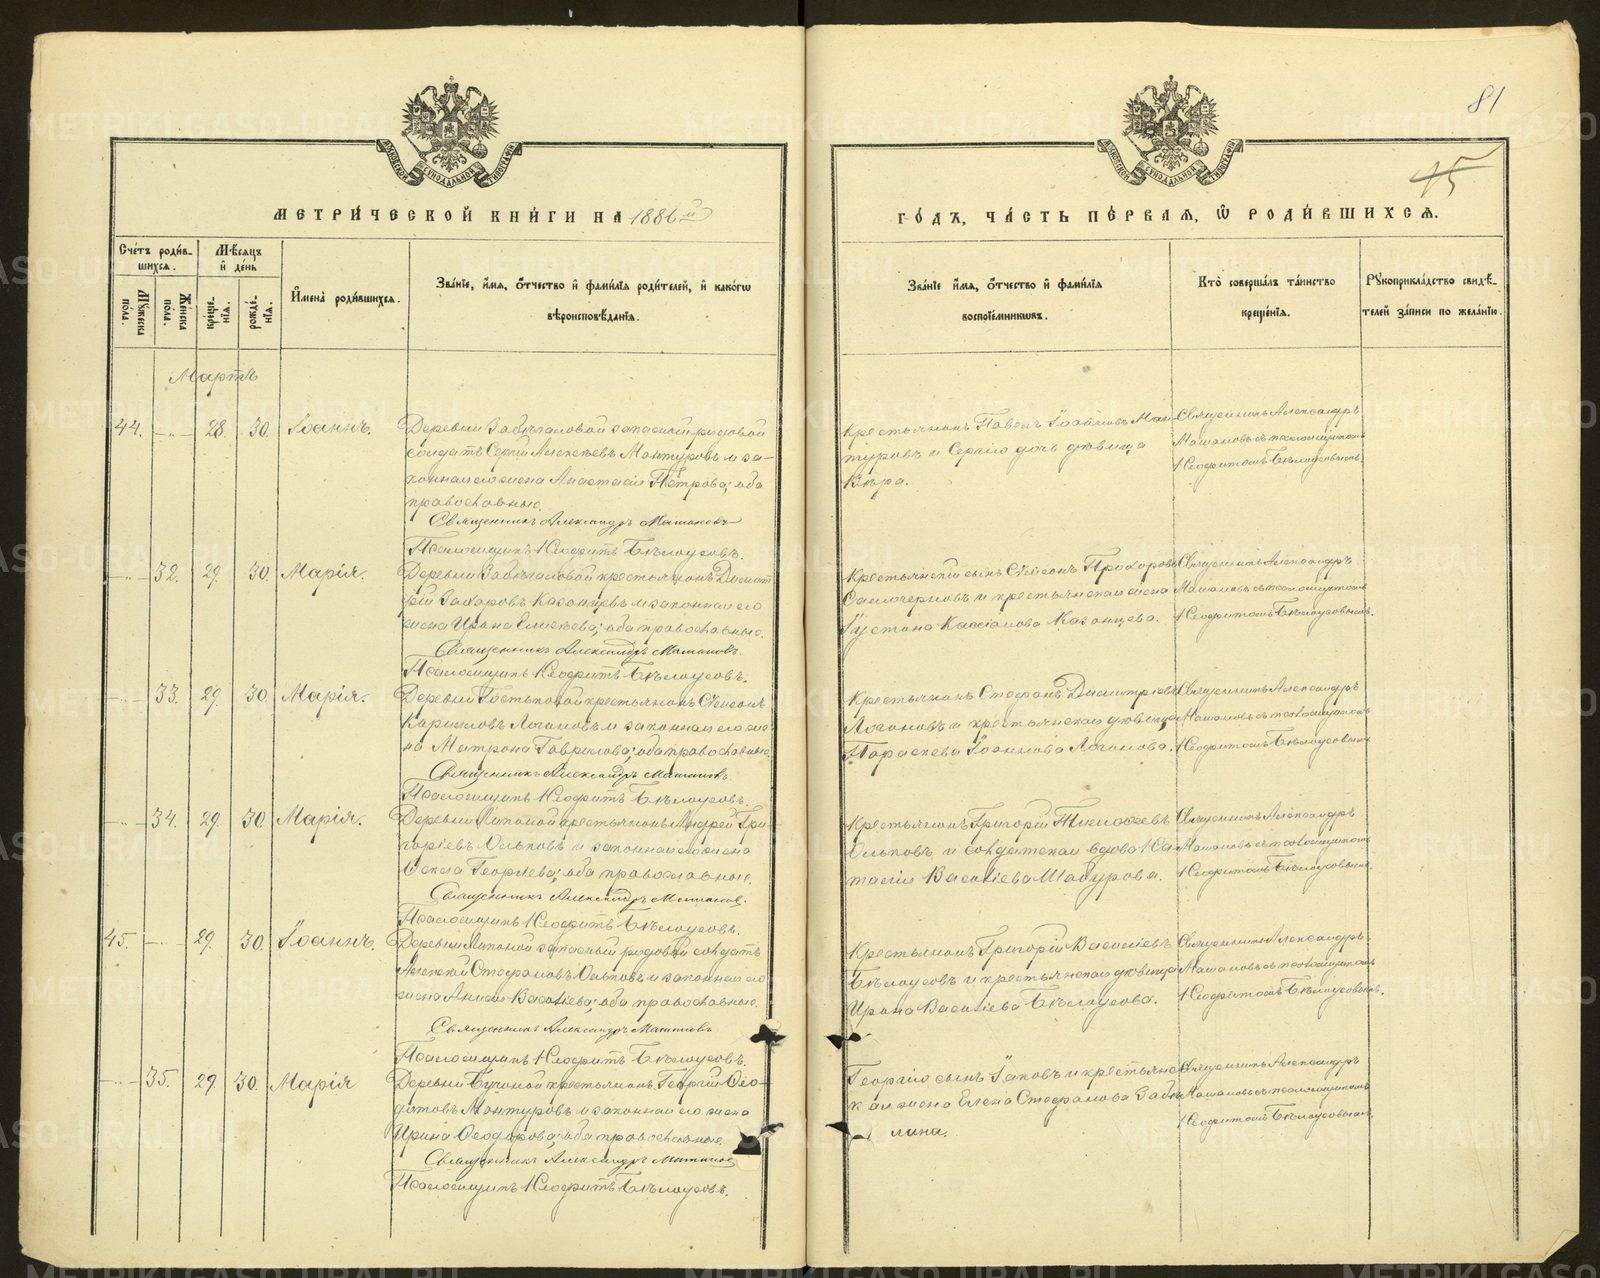 81
15
МЕТРИЧЕСКОЙ КНИГИ НА 1886й
ГОДЪ, ЧАСТЬ ПЕРВАЯ, Ѿ РОДИВШИХСЯ.
Счетъ родив-
шихся.
Мужеска пола.
Женска пола.
Мѣсяцъ
и день
креще-
нія.
рожде-
нія.
Имена родившихся.
Званіе, имя, отчество и фамилія родителей, и какогѡ
вѣроисповѣданія.
Званіе имя, отчество и фамилія
воспріемниковъ.
Кто совершалъ таинство
крещенія.
Рукоприкладство свидѣ-
телей записи по желанію.
Мартъ
44. 28. 30. Іоаннъ.
Деревни запасный рядовой
солдатъ Сергій Алексѣевъ Мантуровъ и за-
конная его жена Анастасія Петрова; оба
православные.
Священникъ Александръ Машановъ
Псаломщикъ Неофитъ Бѣлоусовъ.
Крестьянинъ Павелъ Іоанновъ Ман-
туровъ и Сергію дочь дѣвица
Вѣра.
Священникъ Александръ
Машановъ съ псаломщикомъ
Неофитомъ Бѣлоусовымъ.
32. 29. 30. Марія.
Деревни крестьянинъ Димит-
рій Захаровъ Казанцевъ и законная его
жена Ирина Елисѣева; оба православные.
Священникъ Александръ Машановъ.
Псаломщикъ Неофитъ Бѣлоусовъ.
Крестьянскій сынъ Стефонъ Прохоровъ
и крестьянская жена
Іустина Кассіанова Казанцева.
Священникъ Александръ
Машановъ съ псаломщикомъ
Неофитомъ Бѣлоусовымъ.
33. 29. 30. Марія.
Деревни крестьянинъ
Кириловъ Логановъ и законная его же-
на Матрона Гаврилова; оба православные.
Священникъ Александръ Машановъ.
Псаломщикъ Неофитъ Бѣлоусовъ.
Крестьянинъ Стефанъ Димитріевъ
Логановъ и крестьянская дѣвица
Параскева Іоаннова Логанова.
Священникъ Александръ
Машановъ съ псаломщикомъ
Неофитомъ Бѣлоусовымъ
34. 29. 30. Марія.
Деревни Липиной крестьянинъ Андрей Гри-
горіевъ Ольковъ и законная его жена
Ѳекла Георгіева; оба православные.
Священникъ Александръ Машановъ.
Псаломщикъ Неофитъ Бѣлоусовъ.
Крестьянинъ Григорій Тимоѳеевъ
Ольковъ и солдатская вдова На-
талія Васильева Шабурова.
Священникъ Александръ
Машановъ съ псаломщикомъ
Неофитомъ Бѣлоусовымъ.
45. 29. 30. Іоаннъ.
Деревни Липиной запасный рядовой солдатъ
Алексѣй Стефановъ Ольковъ и законная его
жена Анисія Васильева; оба православные.
Священникъ Александръ Машановъ
Псаломщикъ Неофитъ Бѣлоусовъ.
Крестьянинъ Григорій Васильевъ
Бѣлоусовъ и крестьянская дѣвица
Ирина Васильева Бѣлоусова.
Священникъ Александръ
Машановъ съ псаломщикомъ
Неофитомъ Бѣлоусовымъ.
35. 29. 30. Марія
Деревни Бучиной крестьянинъ Георгій Ѳео-
дотовъ Мантуровъ и законная его жена
Ирина Ѳеодорова; оба православные.
Священникъ Александръ Машановъ
Псаломщикъ Неофитъ Бѣлоусовъ.
Георгію сынъ Іаковъ и крестьянс-
кая жена Елена Стефанова
лина.
Священникъ Александръ
Машановъ съ псаломщикомъ
Неофитомъ Бѣлоусовымъ.